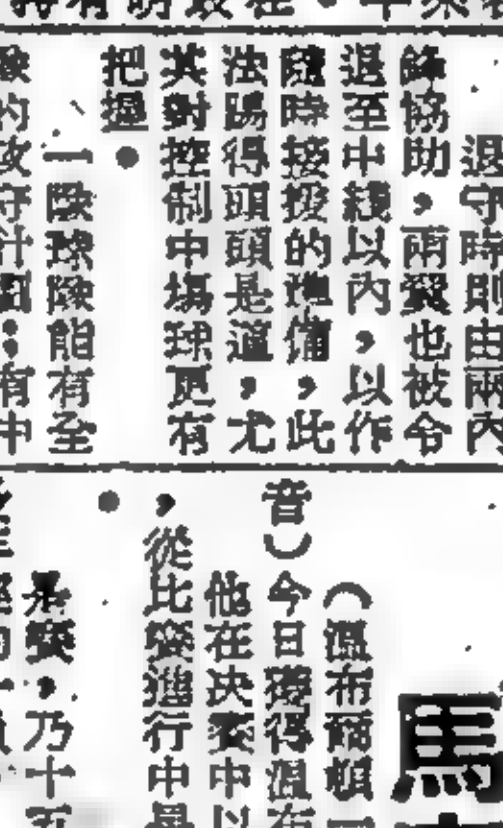 退守時則由兩內
鋒協助，兩翼也被令
退至中綫以內，以作
隨時接援的準備，此
法踢得頭頭是道，尤
其對控制中場球更有
把握。
一隊球隊能有至
的攻守計劃；有中
馬
（溫布爾頓一
音）今日獲得溫布
他在決賽中以
，從比賽進行中
。
乃十五